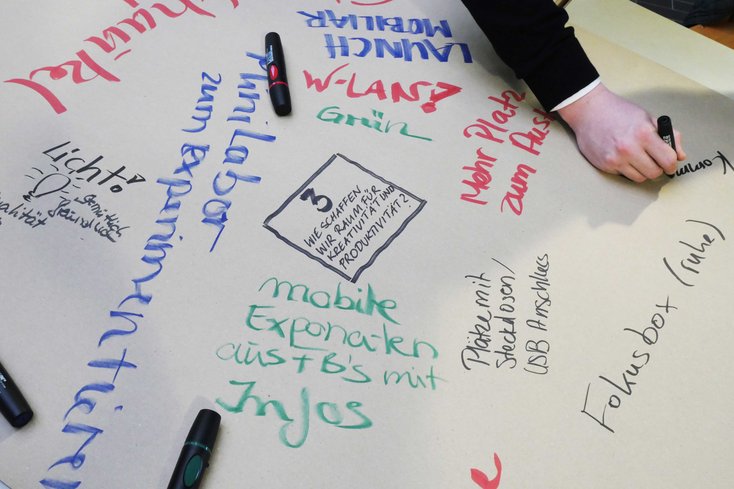 LAUNCH
MOBILIAR
W-LAN!?
Grün
Mehr Platz
zum
Licht!
Minilabor
zum experimentieren
3
WIE SCHAFFEN
WIR RAUM FÜR
KREATIVITÄT UND
PRODUKTIVITÄT?
mobile
Exponaten
aus FB's mit
Infos
Plätze mit
Steckdosen/
USB Anschluss
Fokusbox (ruhe)